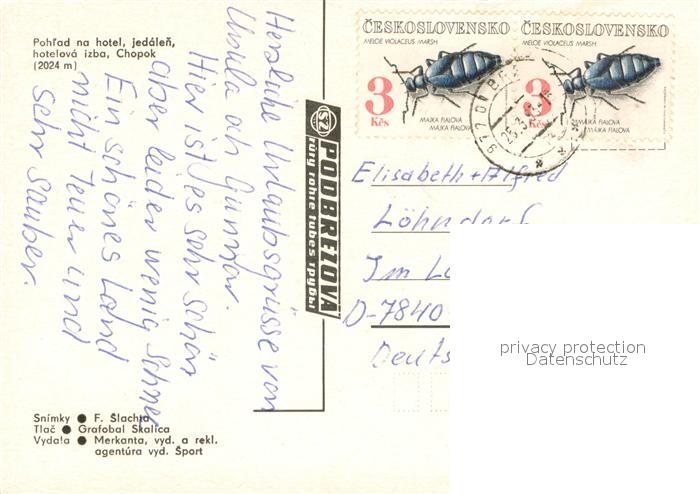 Pohľad na hotel, jedáleň,
hotelová izba, Chopok
(2024 m)
Herzliche Urlaubsgrüsse von
Ursula och Gunnar.
Hier ist es sehr schön
aber leider wenig Schnee
Ein schönes Land
nicht Teuer und
sehr sauber.
Snímky ● F. Šlachta
Tlač ● Grafobal Skalica
Vydala ● Merkanta, vyd. a rekl.
agentúra vyd. Šport
SZ PODBREZOVÁ
rúry rohre tubes трубы
ČESKOSLOVENSKO
MELOE VIOLACEUS MARSH.
3
Kčs
MAJKA FIALOVÁ
MÁJKA FIALOVÁ
ČESKOSLOVENSKO
MELOE VIOLACEUS MARSH.
3
Kčs
MAJKA FIALOVÁ
MÁJKA FIALOVÁ
Elisabeth + Alfred
Löhndorf
Im
D-7840
Deuts
privacy protection
Datenschutz